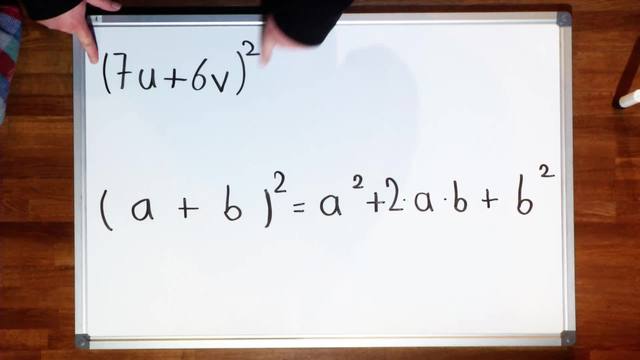 (7u+6v)²
(a + b)² = a² + 2·a·b + b²